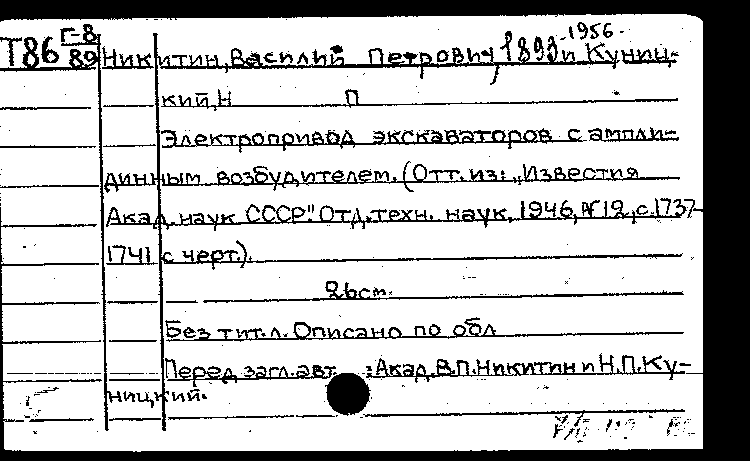 Т86 Г-8/89 Никитин, Василий Петрович, 1893-1956. и Куниц-
кий, Н П
Электропривод экскаваторов с ампли-
динным возбудителем. (Отт. из: „Известия
Акад. наук СССР." Отд. техн. наук, 1946, № 12, с. 1737-
1741 с черт.).
26 см.
Без тит. л. Описано по обл
Перед загл. авт. : Акад. В.П. Никитин и Н.П. Ку-
ницкий.